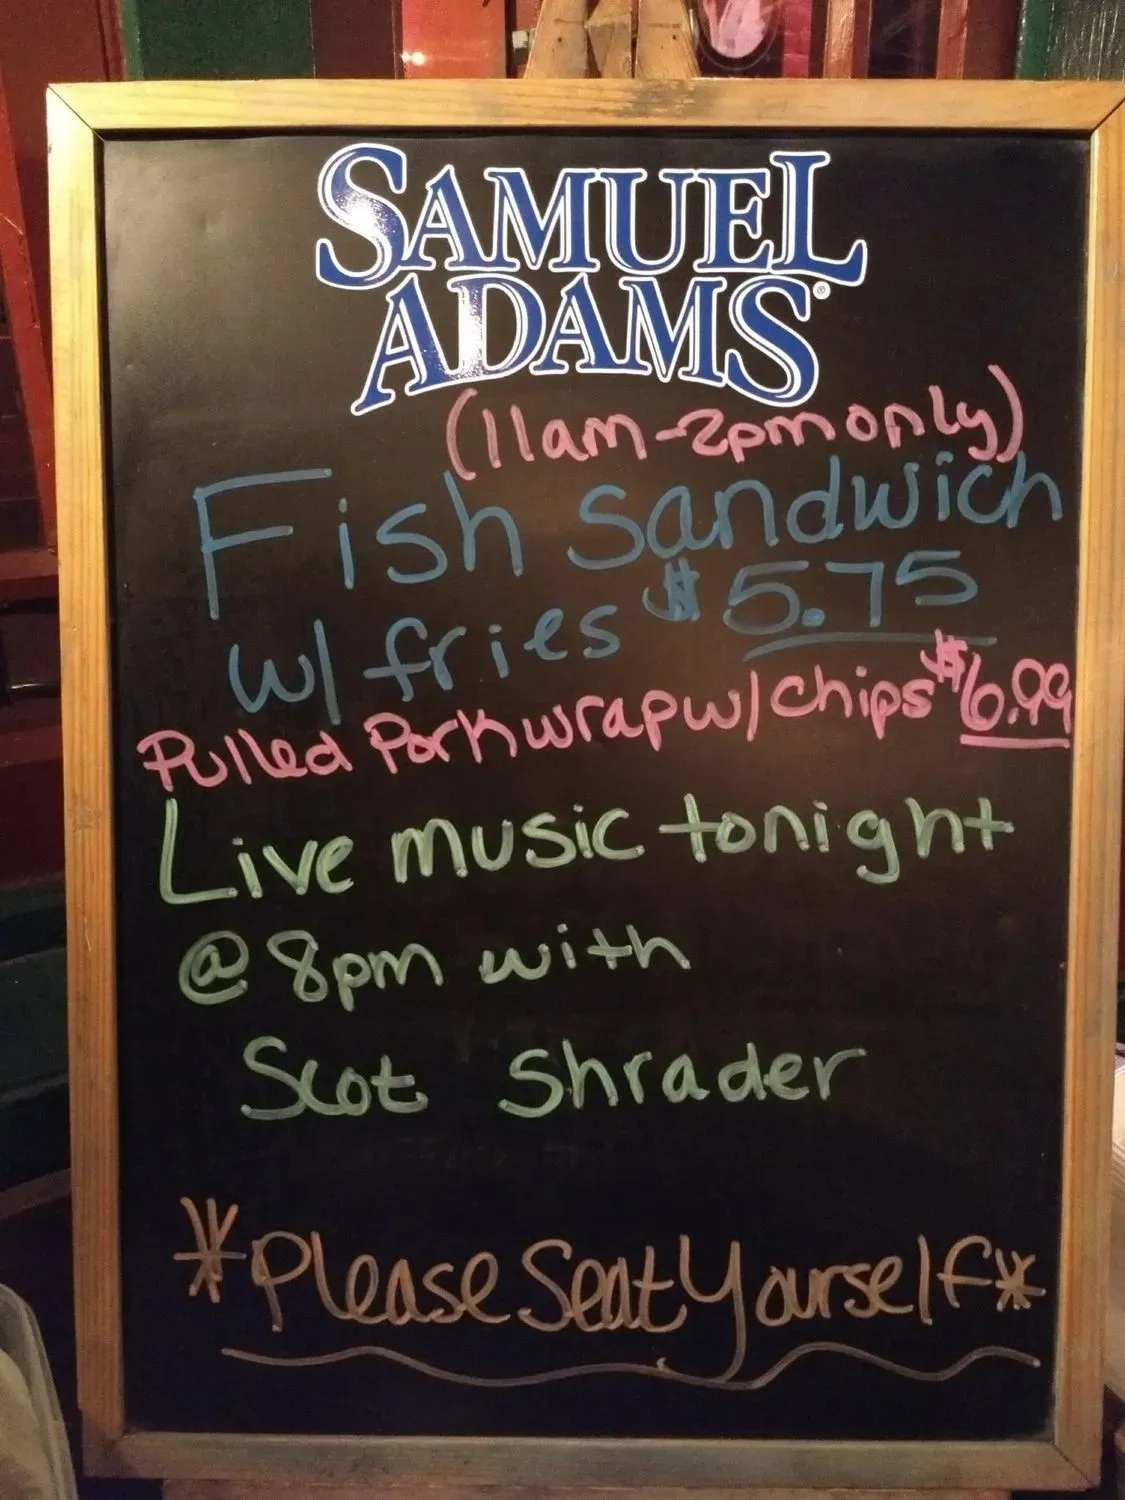 SAMUEL
ADAMS®
(11am-2pm only)
Fish sandwich
w/ fries $5.75
Pulled Pork wrap w/ chips $6.99
Live music tonight
@ 8pm with
Scot Shrader
*Please Seat Yourself*